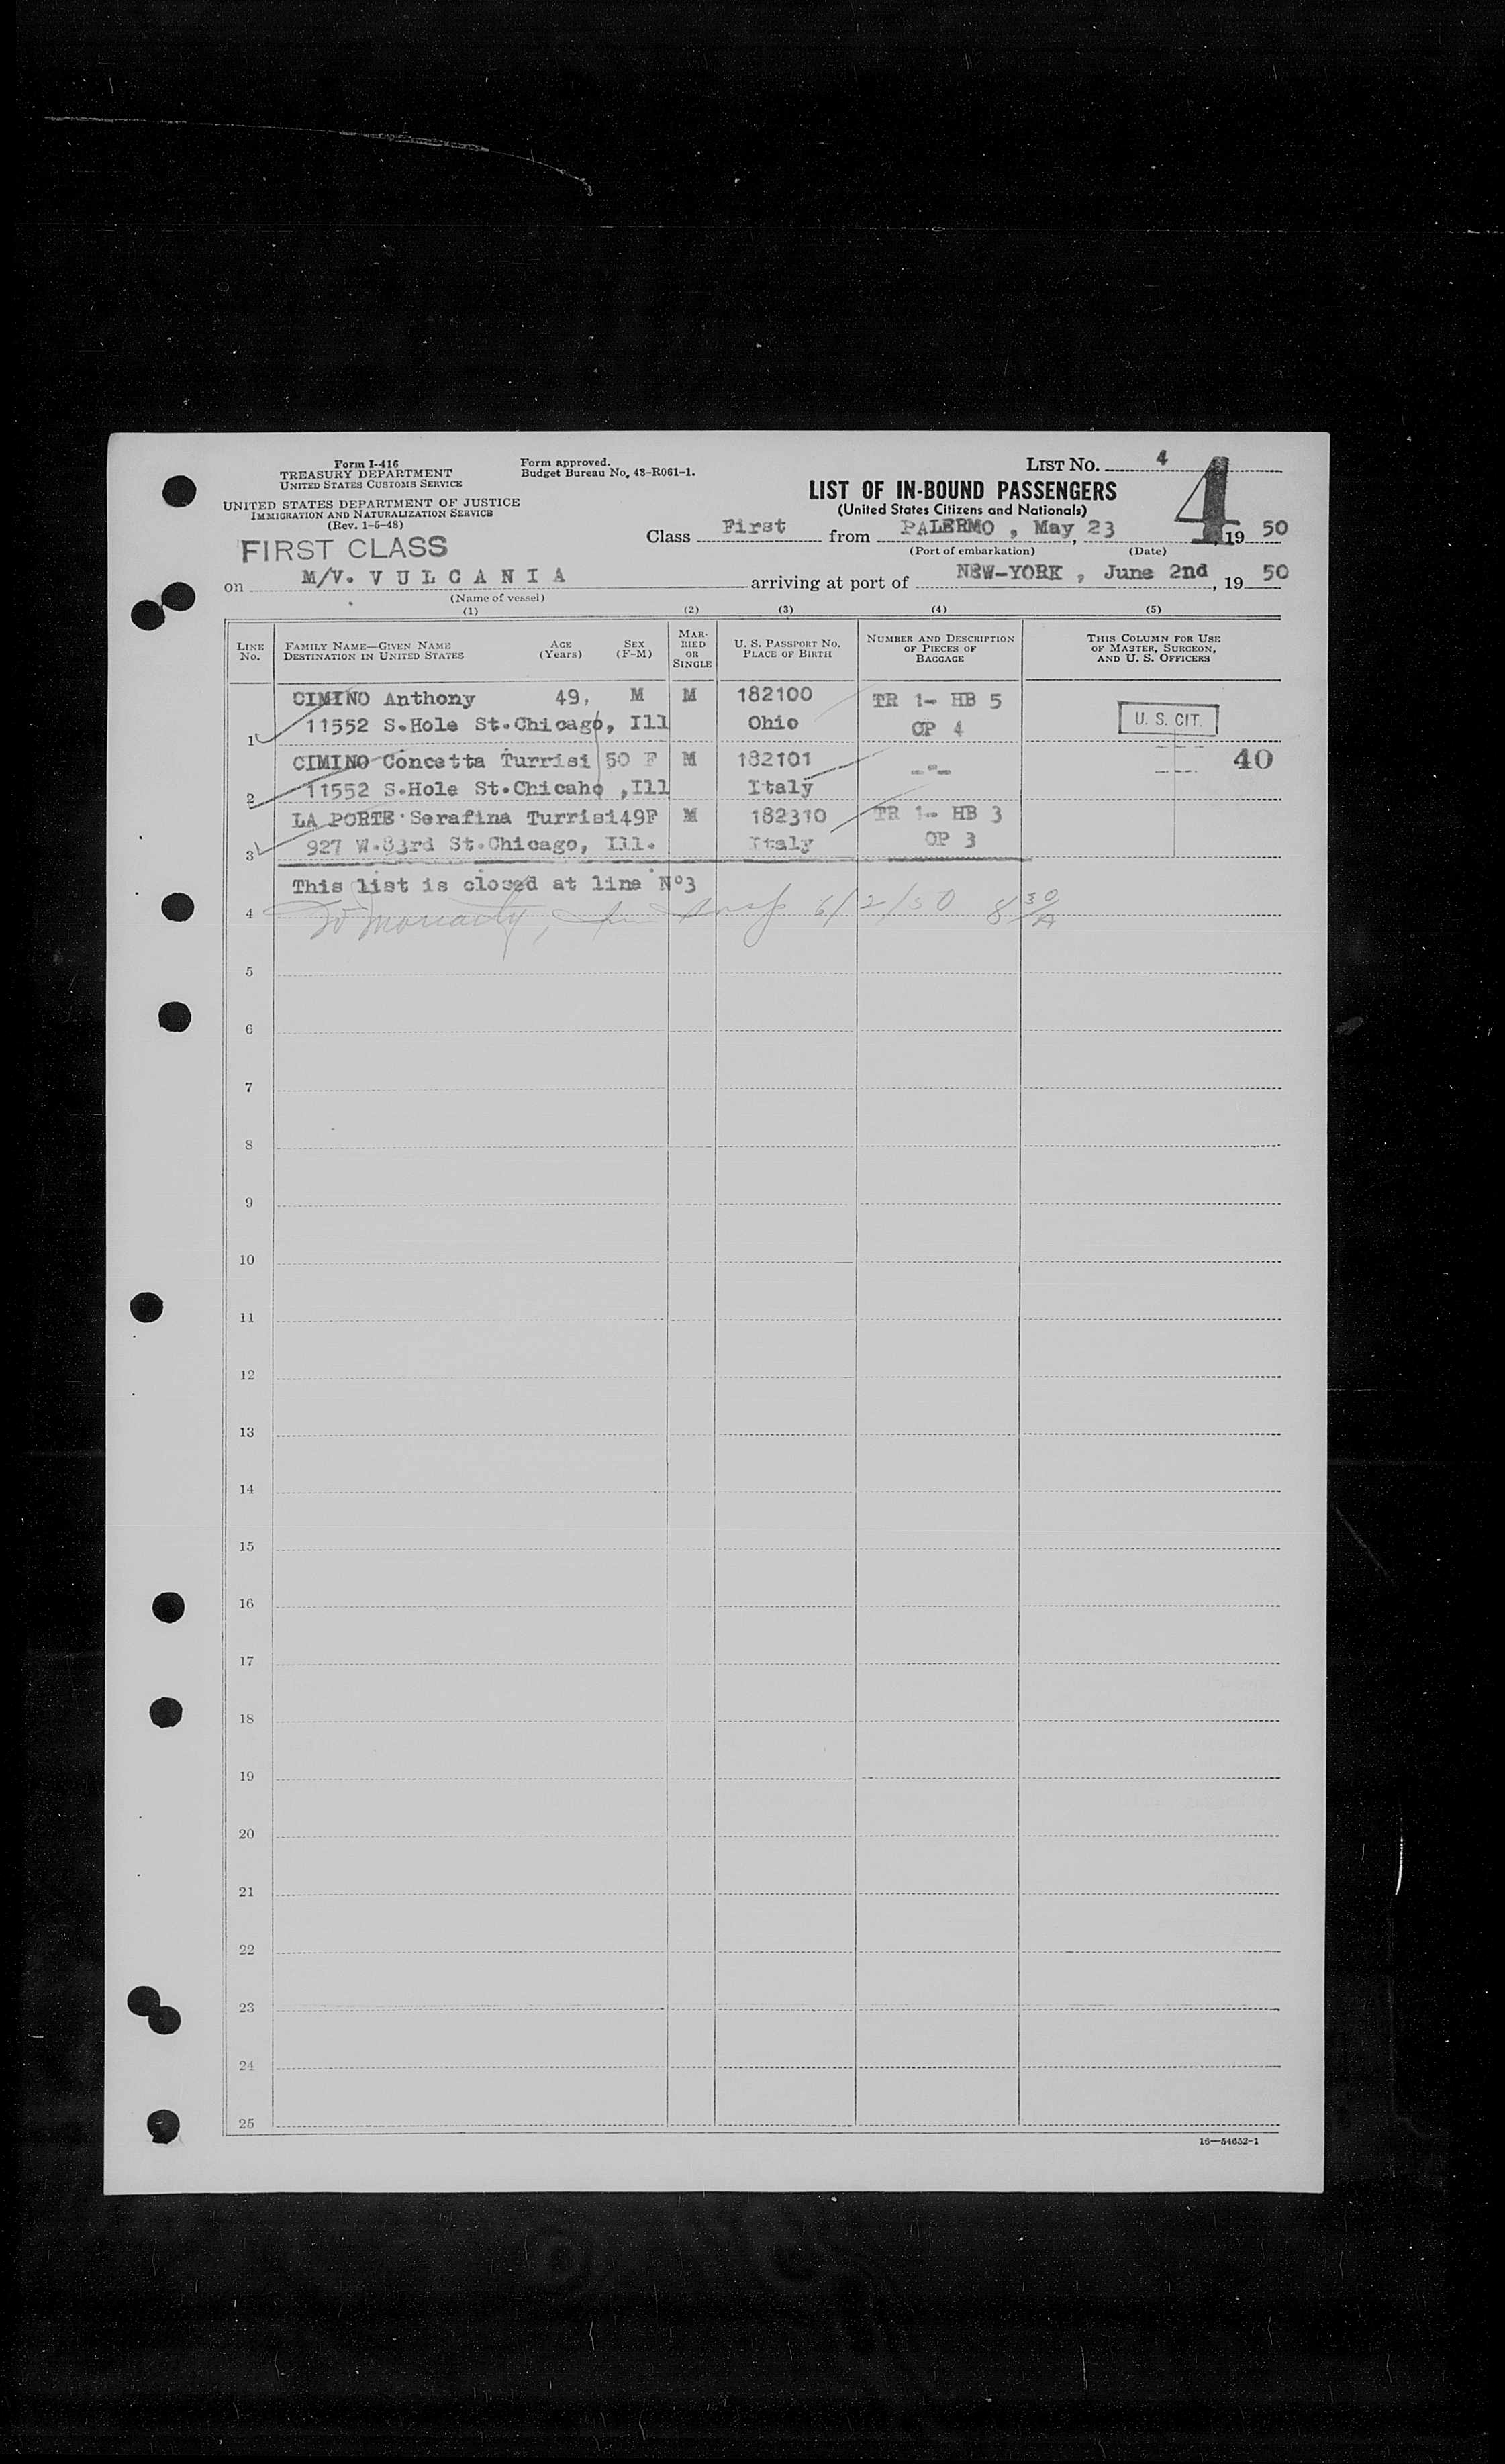 Form I-416
TREASURY DEPARTMENT
UNITED STATES CUSTOMS SERVICE
UNITED STATES DEPARTMENT OF JUSTICE
IMMIGRATION AND NATURALIZATION SERVICE
(Rev. 1-5-48)
Form approved.
Budget Bureau No. 43-R061-1.
LIST No. 4
4
LIST OF IN-BOUND PASSENGERS
(United States Citizens and Nationals)
FIRST CLASS
Class First from PALERMO , May 23, 19 50
(Port of embarkation) (Date)
on M/V. V U L C A N I A arriving at port of NEW-YORK , June 2nd, 19 50
(Name of vessel)
(1) (2) (3) (4) (5)
LINE No. FAMILY NAME—GIVEN NAME DESTINATION IN UNITED STATES AGE (Years) SEX (F-M) MARRIED OR SINGLE U. S. PASSPORT No. PLACE OF BIRTH NUMBER AND DESCRIPTION OF PIECES OF BAGGAGE THIS COLUMN FOR USE OF MASTER, SURGEON, AND U. S. OFFICERS
CIMINO Anthony 49, M M 182100 TR 1- HB 5
1 11552 S.Hole St.Chicago, Ill Ohio OP 4 U. S. CIT.
CIMINO Concetta Turrisi 50 F M 182101 -"- 40
2 11552 S.Hole St.Chicaho ,Ill Italy
LA PORTE Serafina Turrisi49F M 182310 TR 1- HB 3
3 927 W.83rd St.Chicago, Ill. Italy OP 3
This list is closed at line N°3
4 Moriarty, 6/2/50 8 30/A
5
6
7
8
9
10
11
12
13
14
15
16
17
18
19
20
21
22
23
24
25
16—54652-1